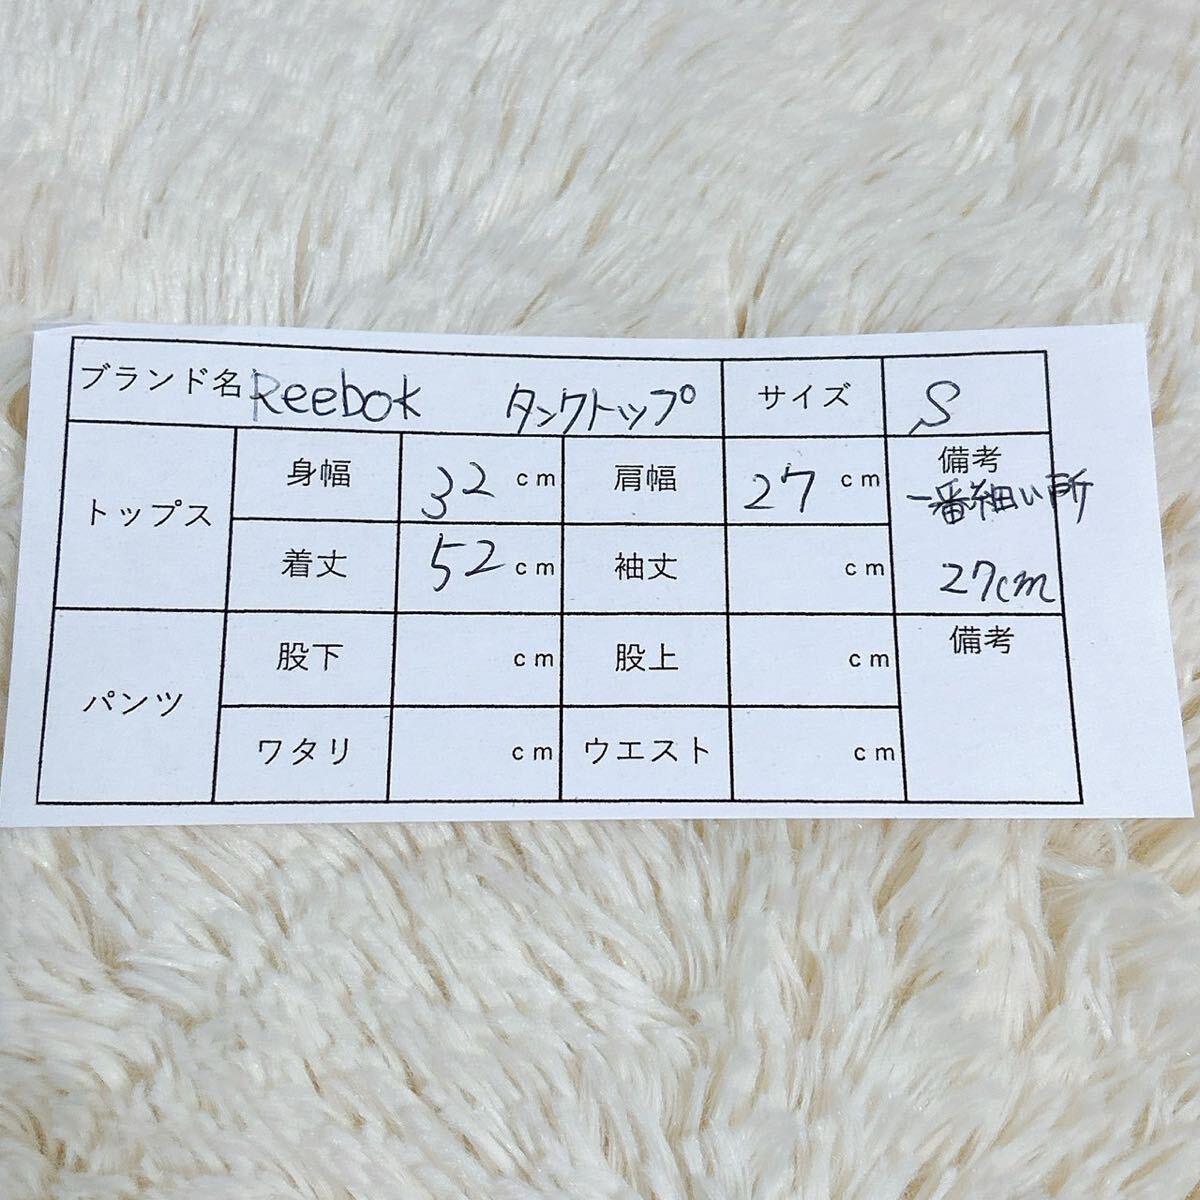 ブランド名 Reebok タンクトップ サイズ S
トップス 身幅 32 cm 肩幅 27 cm 備考
一番細い所
着丈 52 cm 袖丈 cm 27cm
パンツ 股下 cm 股上 cm 備考
ワタリ cm ウエスト cm